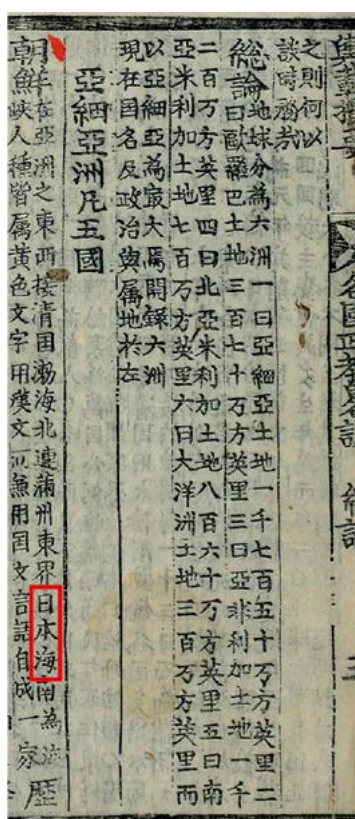 各國政教略說
總論
三
之則何以
談時務哉
總論
地球分為六洲一曰亞細亞土地一千七百五十万方英里二
曰歐羅巴土地三百七十万方英里三曰亞非利加土地一千
二百万方英里四曰北亞米利加土地八百六十万方英里五曰南
亞米利加土地七百万方英里六曰大洋洲土地三百万方英里而
以亞細亞為最大焉開錄六洲
現在国名及政治與属地於左
亞細亞洲凡五國
朝鮮
在亞洲之東西接清国渤海北邊满州東界日本海南為海
峽人種皆属黄色文字用漢文而兼用国文言語自成一家
歷